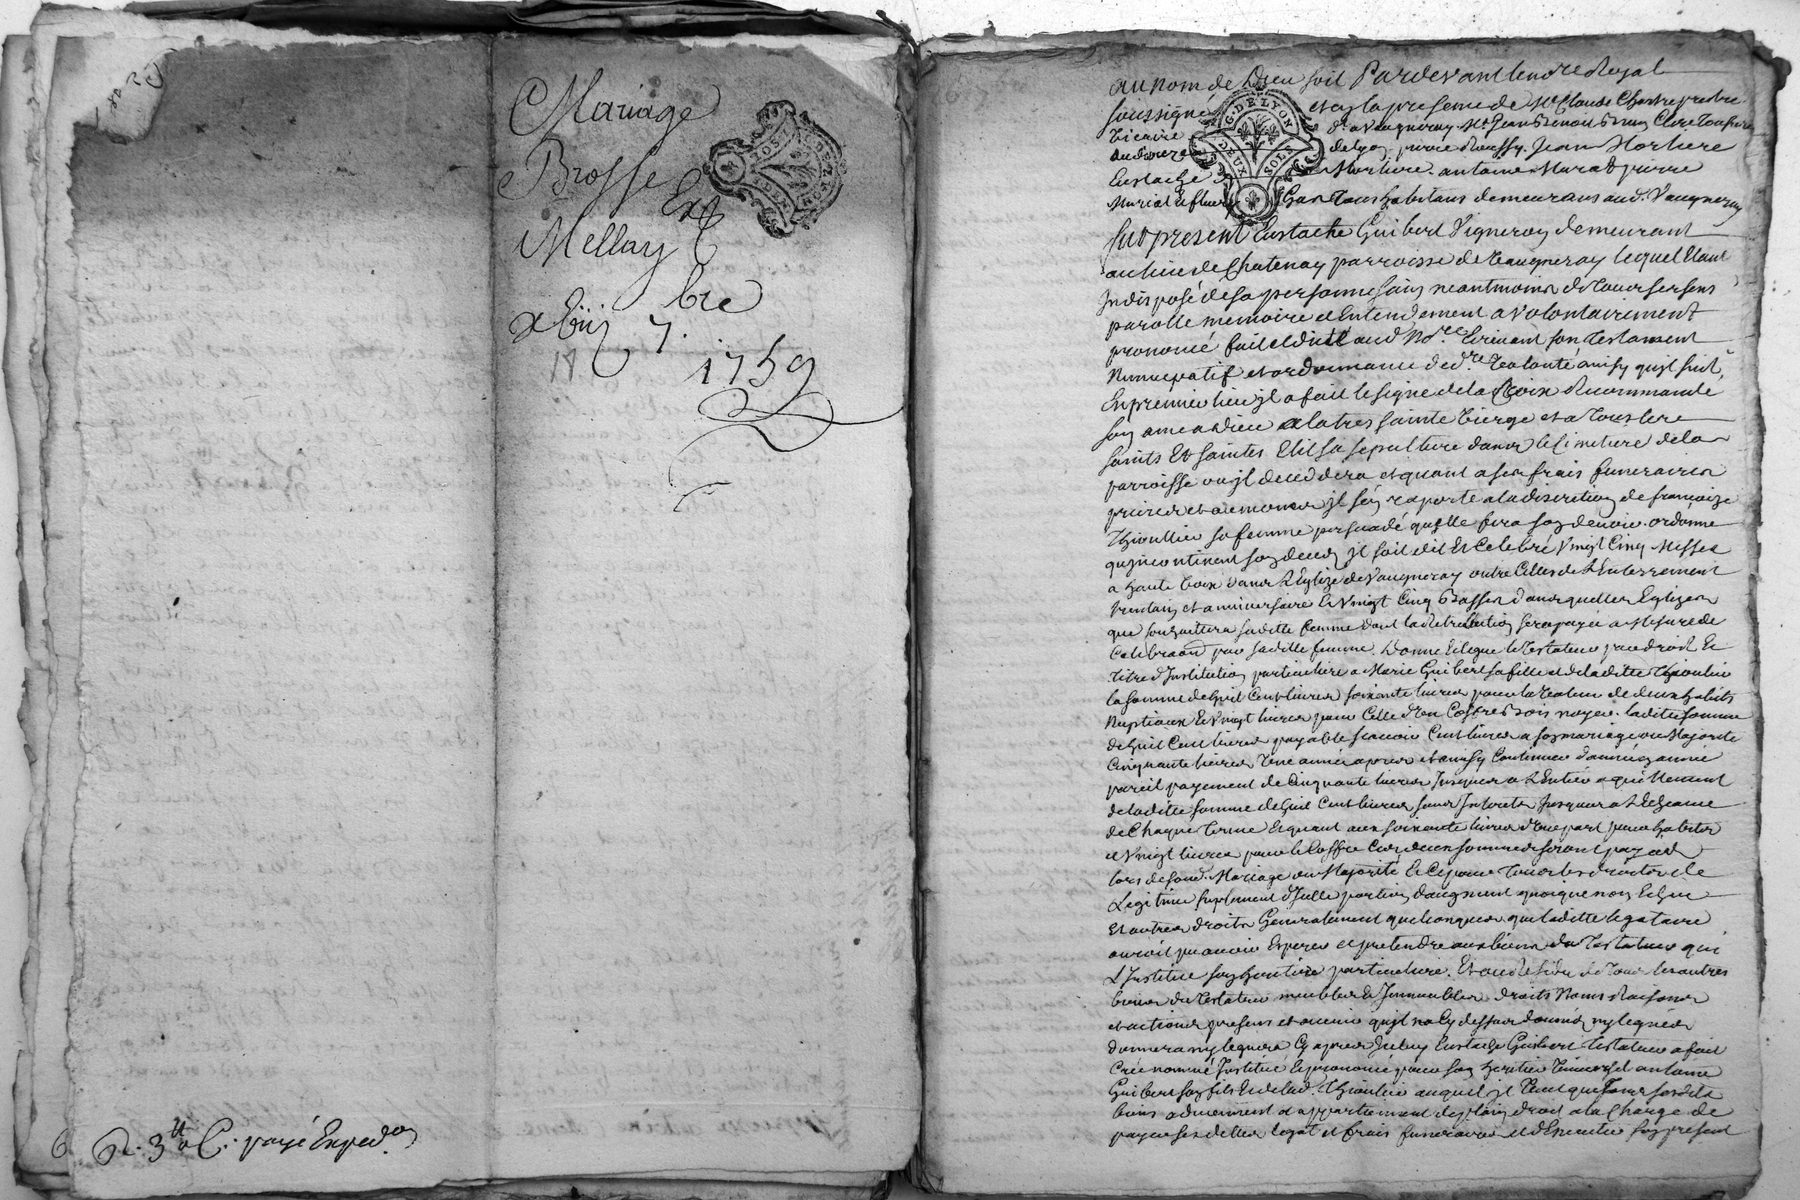 Mariage
Brosse
Ext
Mellay
xbiij 7. bre
18
1759
G. DE LYON
DEUX SOLS
6
R. 3 tt C. payé Exped.on
au nom de Dieu soit Pardevant le no.re Royal
soussigné et en la presence de M.e Claude pretre
Vicaire d. a Vaugneray M.e Jean Benoit Brun Clerc Tonsuré
du Diocese de Lyon, pierre Roussy, Jean Morliere
Eustache Morliere, antoine Murat pierre
Muriat Tous habitans demeurans aud. Vaugneray
fut present Eustache Guibert Vigneron demeurant
au lieu de Chatenay parroisse de Vaugneray lequel Etant
Indisposé de sa personne sain neantmoins de Tous ses sens
parolle memoire et Entendement a volontairement
prononcé fait et dicté aud. No.re Ecrivant son Testament
Nuncupatif et ordonnance de d.re Volonté ainsy quil suit,
En premier lieu jl a fait le signe de la Croix Recommandé
son ame a Dieu a la tres sainte Vierge et a Tous les
saints Et saintes Elit sa sepulture dans le Cimetiere de la
parroisse ou jl deceddera et quant a ses frais funeraires
prieres et aumones jl s'en raporte a la discretion de francoize
Thioullier sa femme persuadé quelle fera son devoir. ordonne
quincontinent son deced jl soit dit Et Celebré Vingt Cinq Messes
a haute Voix dans L'Eglize de Vaugneray outre Celles de L'Enterrement
et anniversaire Et Vingt Cinq Basses dans quelles Eglizes
que souhaittera saditte femme dont la Retribution sera payée a Mesure de
Celebraon par saditte femme. Donne Legue le Testateur par droit Et
titre d'Institution particuliere a Marie Guibert sa fille et de laditte Thioulier
la somme de huit Cent livres soixante livres pour la Valeur de deux habits
Nuptiaux Et Vingt livres pour Celle d'Un Coffre Bois noyer. laditte somme
de huit Cent livres payable scavoir Cent livres a son mariage ou Majorité
Cinquante livres Une année apres et ainsy Continuer d'année a année
pareil payement de Cinquante livres Jusques a L'Entier aquittement
de laditte somme de huit Cent livres sans Interets Jusques a L'Echeance
de Chaque Terme Et quant aux soixante livres d'Une part pour habits
et Vingt livres pour le Coffre Ces deux sommes seront payées
lors de sond. Mariage ou Majorité Et Ce pour Tous les droits de
Legitime suplement d'Icelle portion d'augment quoique non Echue
Et autres droits Generalement quelconques que laditte legataire
auroit pu avoir Esperer et pretendre aux biens du Testateur qui
L'Institue son heritiere particuliere. Et au Residu de Tous les autres
biens du Testateur meubles Et Immeubles droits Noms Raisons
et actions presens et avenir quil na Cy dessus donnés ny legués
donnera ny leguera Cy apres Iceluy Eustache Guibert Testateur a fait
Créé nommé Institué Et prononcé pour son heritier Universel antoine
Guibert son fils Et de lad. Thioulier auquel jl Veut que Tous sesdits
biens adviennent et appartiennent de plein droit a la Charge de
payer ses dettes legat et frais funeraires et d'Executer son present